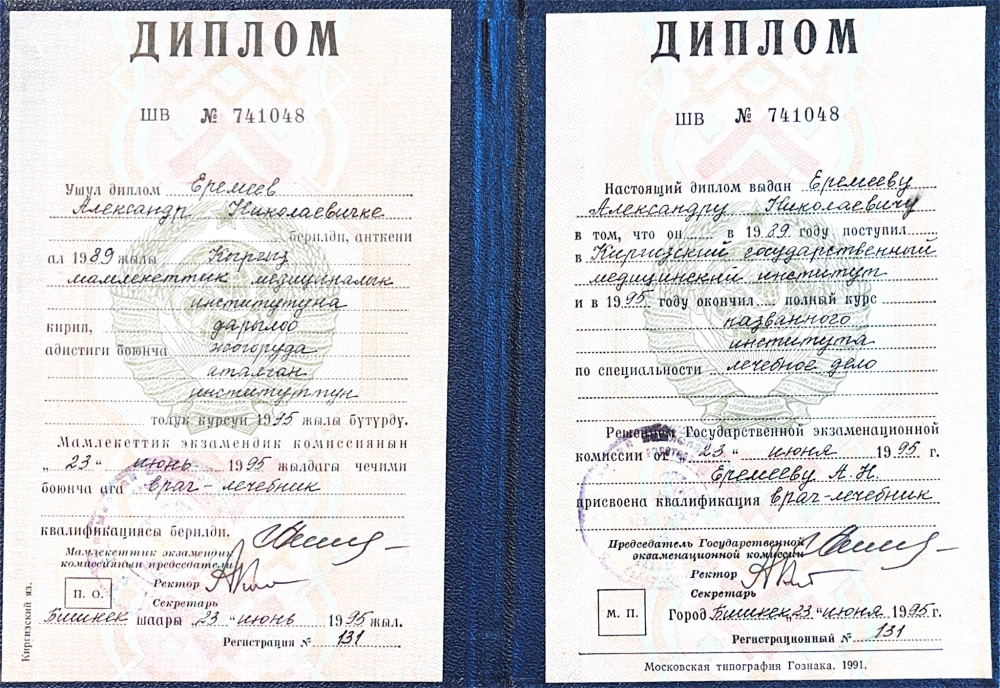 ДИПЛОМ
ШВ № 741048
Ушул диплом Еремеев
Александр Николаевичке
берилди, анткени
ал 1989 жылы Кыргыз
мамлекеттик медициналык
институтуна
кирип, дарылоо
адистиги боюнча жогоруда
аталган
институттун
толук курсун 1995 жылы бүтүрдү.
Мамлекеттик экзамендик комиссиянын
„23“ июнь 1995 жылдагы чечими
боюнча ага врач-лечебник
квалификациясы берилди.
Мамлекеттик экзамендик
комиссиянын председатели
Ректор
Секретарь
П. О.
Бишкек шаары „23“ июнь 1995 жыл.
Регистрация № 131
Киргизский яз.
ДИПЛОМ
ШВ № 741048
Настоящий диплом выдан Еремееву
Александру Николаевичу
в том, что он в 1989 году поступил
в Киргизский государственный
медицинский институт
и в 1995 году окончил полный курс
названного
института
по специальности лечебное дело
Решением Государственной экзаменационной
комиссии от „23“ июня 1995 г.
Еремееву А.Н.
присвоена квалификация врач-лечебник
Председатель Государственной
экзаменационной комиссии
Ректор
Секретарь
М. П.
Город Бишкек „23“ июня 1995 г.
Регистрационный № 131
Московская типография Гознака. 1991.